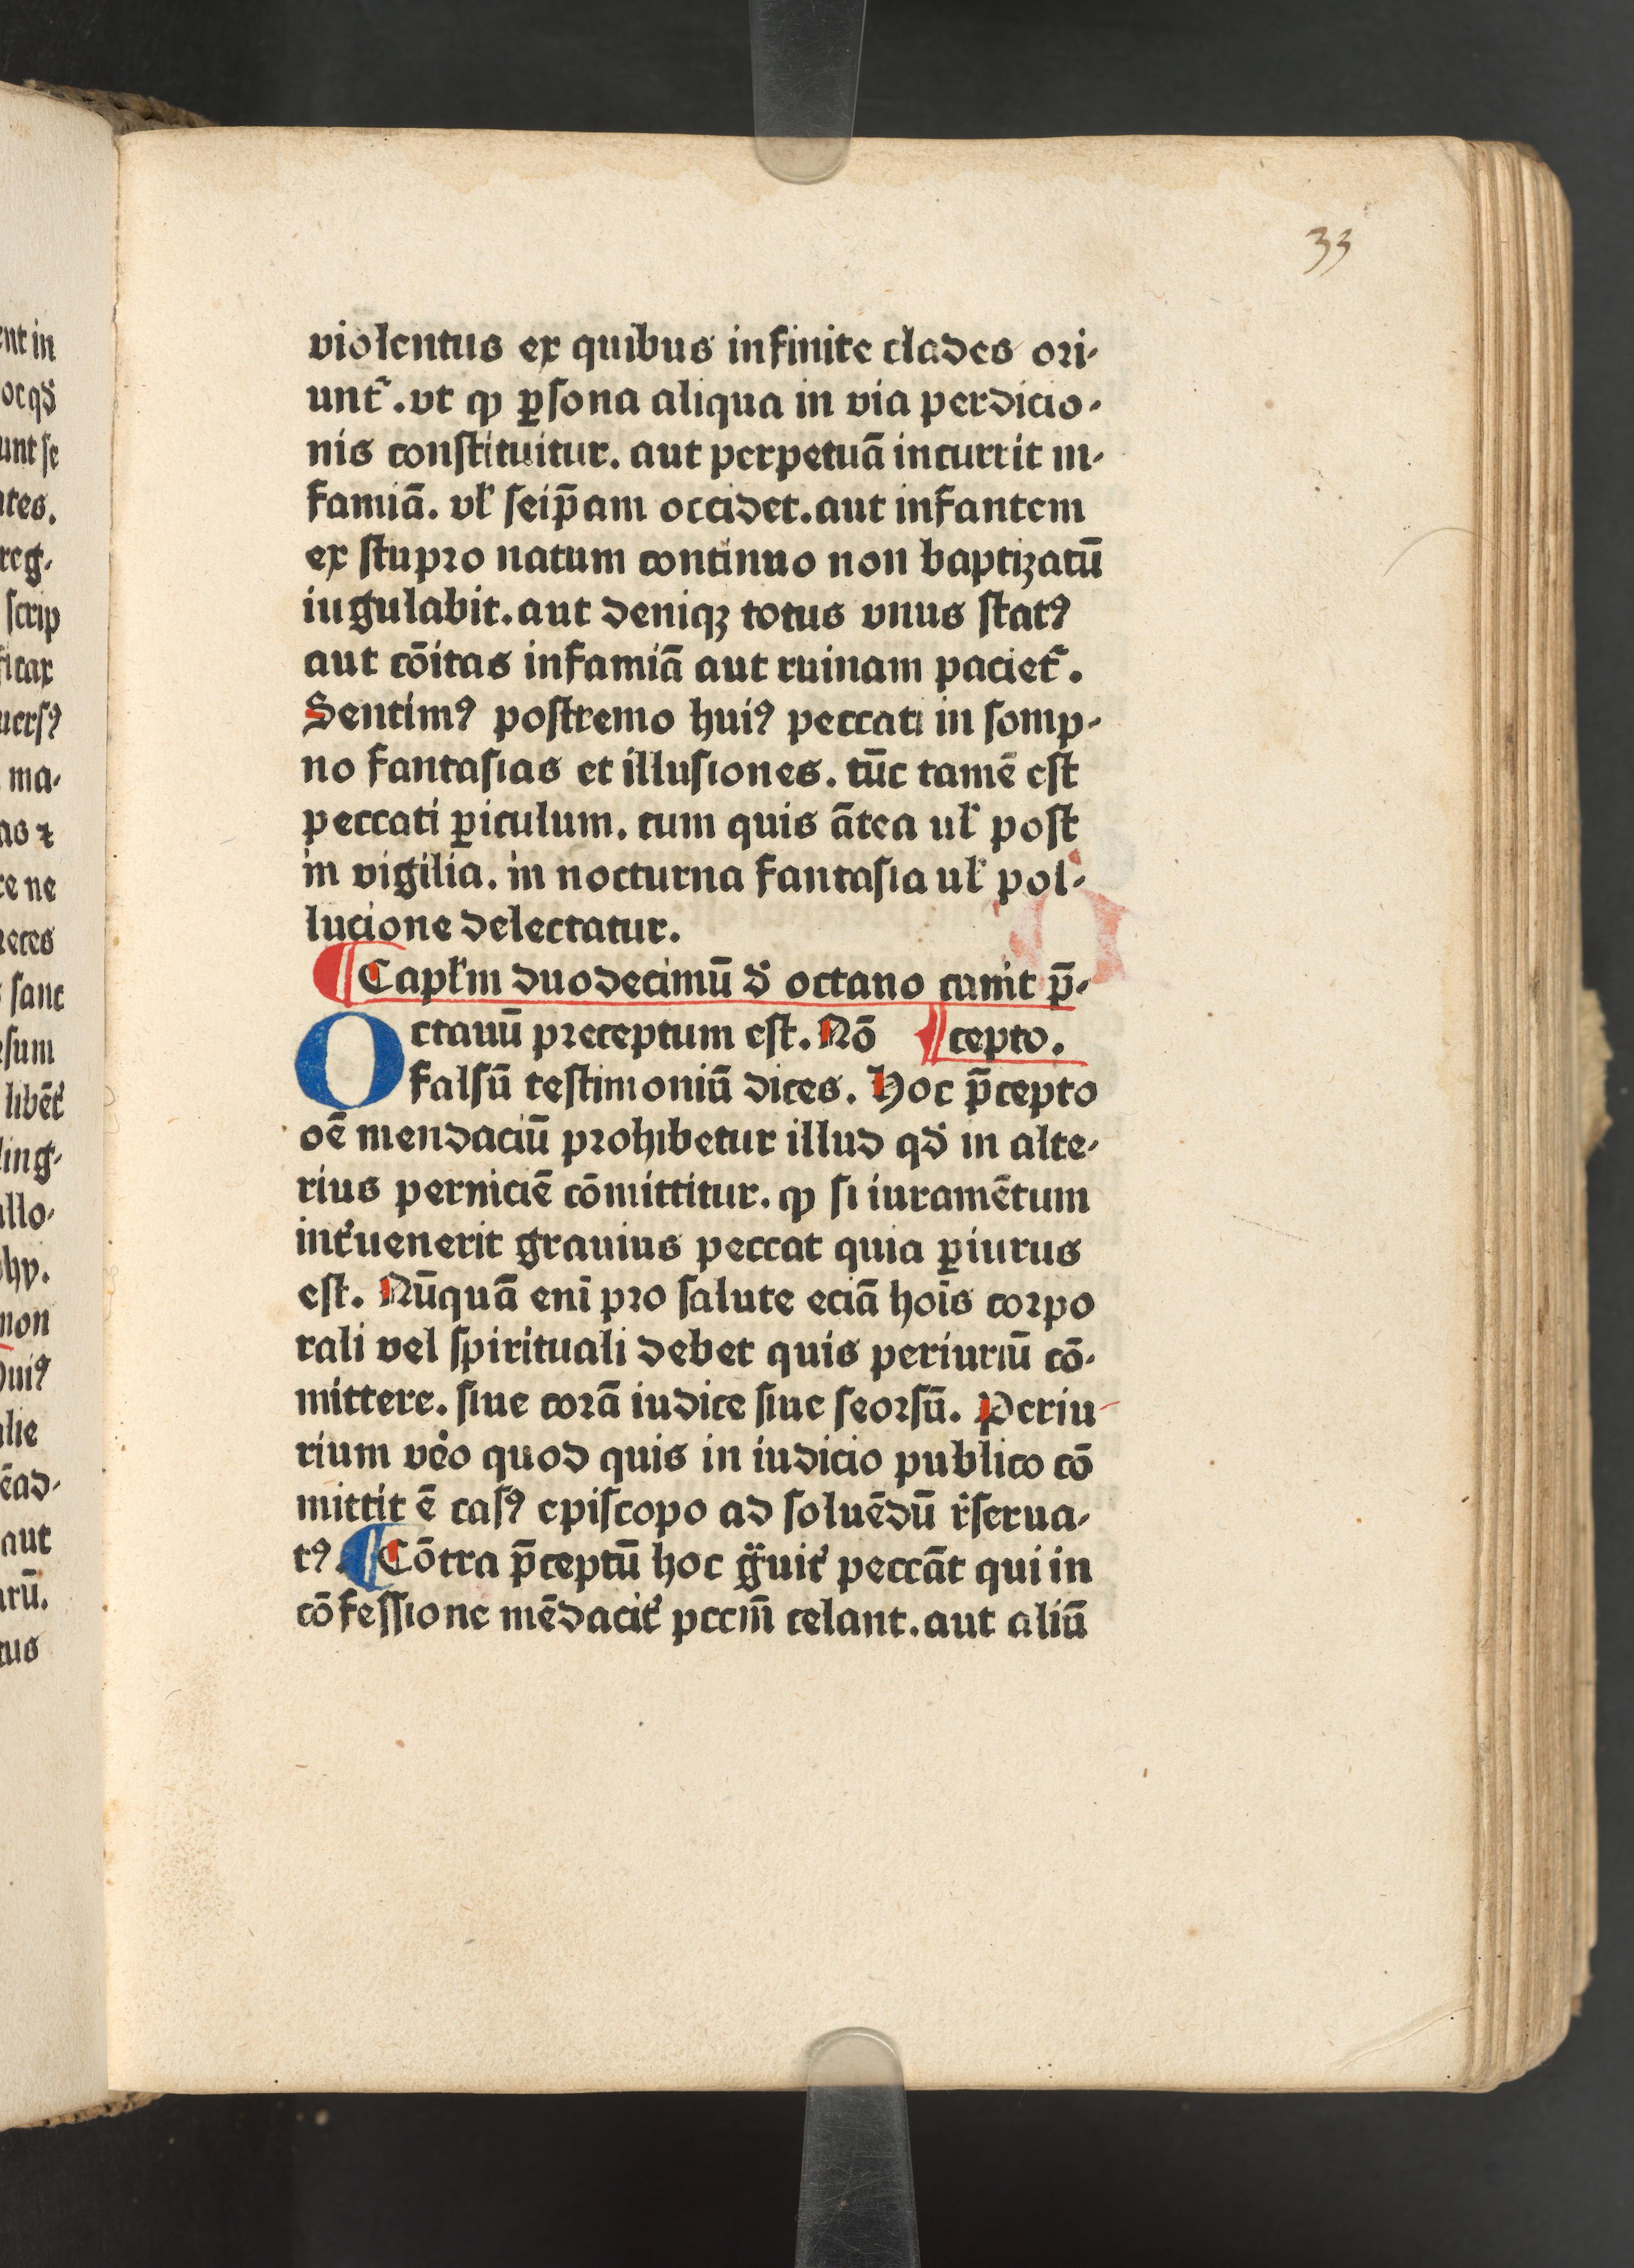 33
violentus ex quibus infinite clades ori-
unt᷑. vt ꝙ ꝑsona aliqua in via perdicio-
nis constituitur. aut perpetuā incurrit in-
famiā. vl̓ seip̄am occidet. aut infantem
ex stupro natum continuo non baptizatū
iugulabit. aut deniqꝫ totus vnus statꝰ
aut cōitas infamiā aut ruinam paciet᷑.
Sentimꝰ postremo huiꝰ peccati in somp-
no fantasias et illusiones. tūc tamē est
peccati ꝑiculum. cum quis ātea ul̓ post
in vigilia. in nocturna fantasia ul̓ pol-
lucione delectatur.
¶Capl̓m duodecimū d̓ octauo cauit p̄-
Octauū preceptum est. Nō ¶cepto.
falsū testimoniū dices. Hoc p̄cepto
oē mendaciū prohibetur illud qd̓ in alte-
rius perniciē cōmittitur. ꝙ si iuramētum
int̓uenerit grauius peccat quia ꝑiurus
est. Nūquā eni̅ pro salute eciā hoi̅s corpo
rali vel spirituali debet quis periuriū cō-
mittere. siue corā iudice siue seorsū. Periu
rium ve̊o quod quis in iudicio publico cō
mittit ē casꝰ episcopo ad soluēdū r̓serua-
tꝰ. ¶Cōtra p̄ceptū hoc gͣuit̓ peccāt qui in
cōfessione mēdacit̓ pccm̄ celant. aut aliū